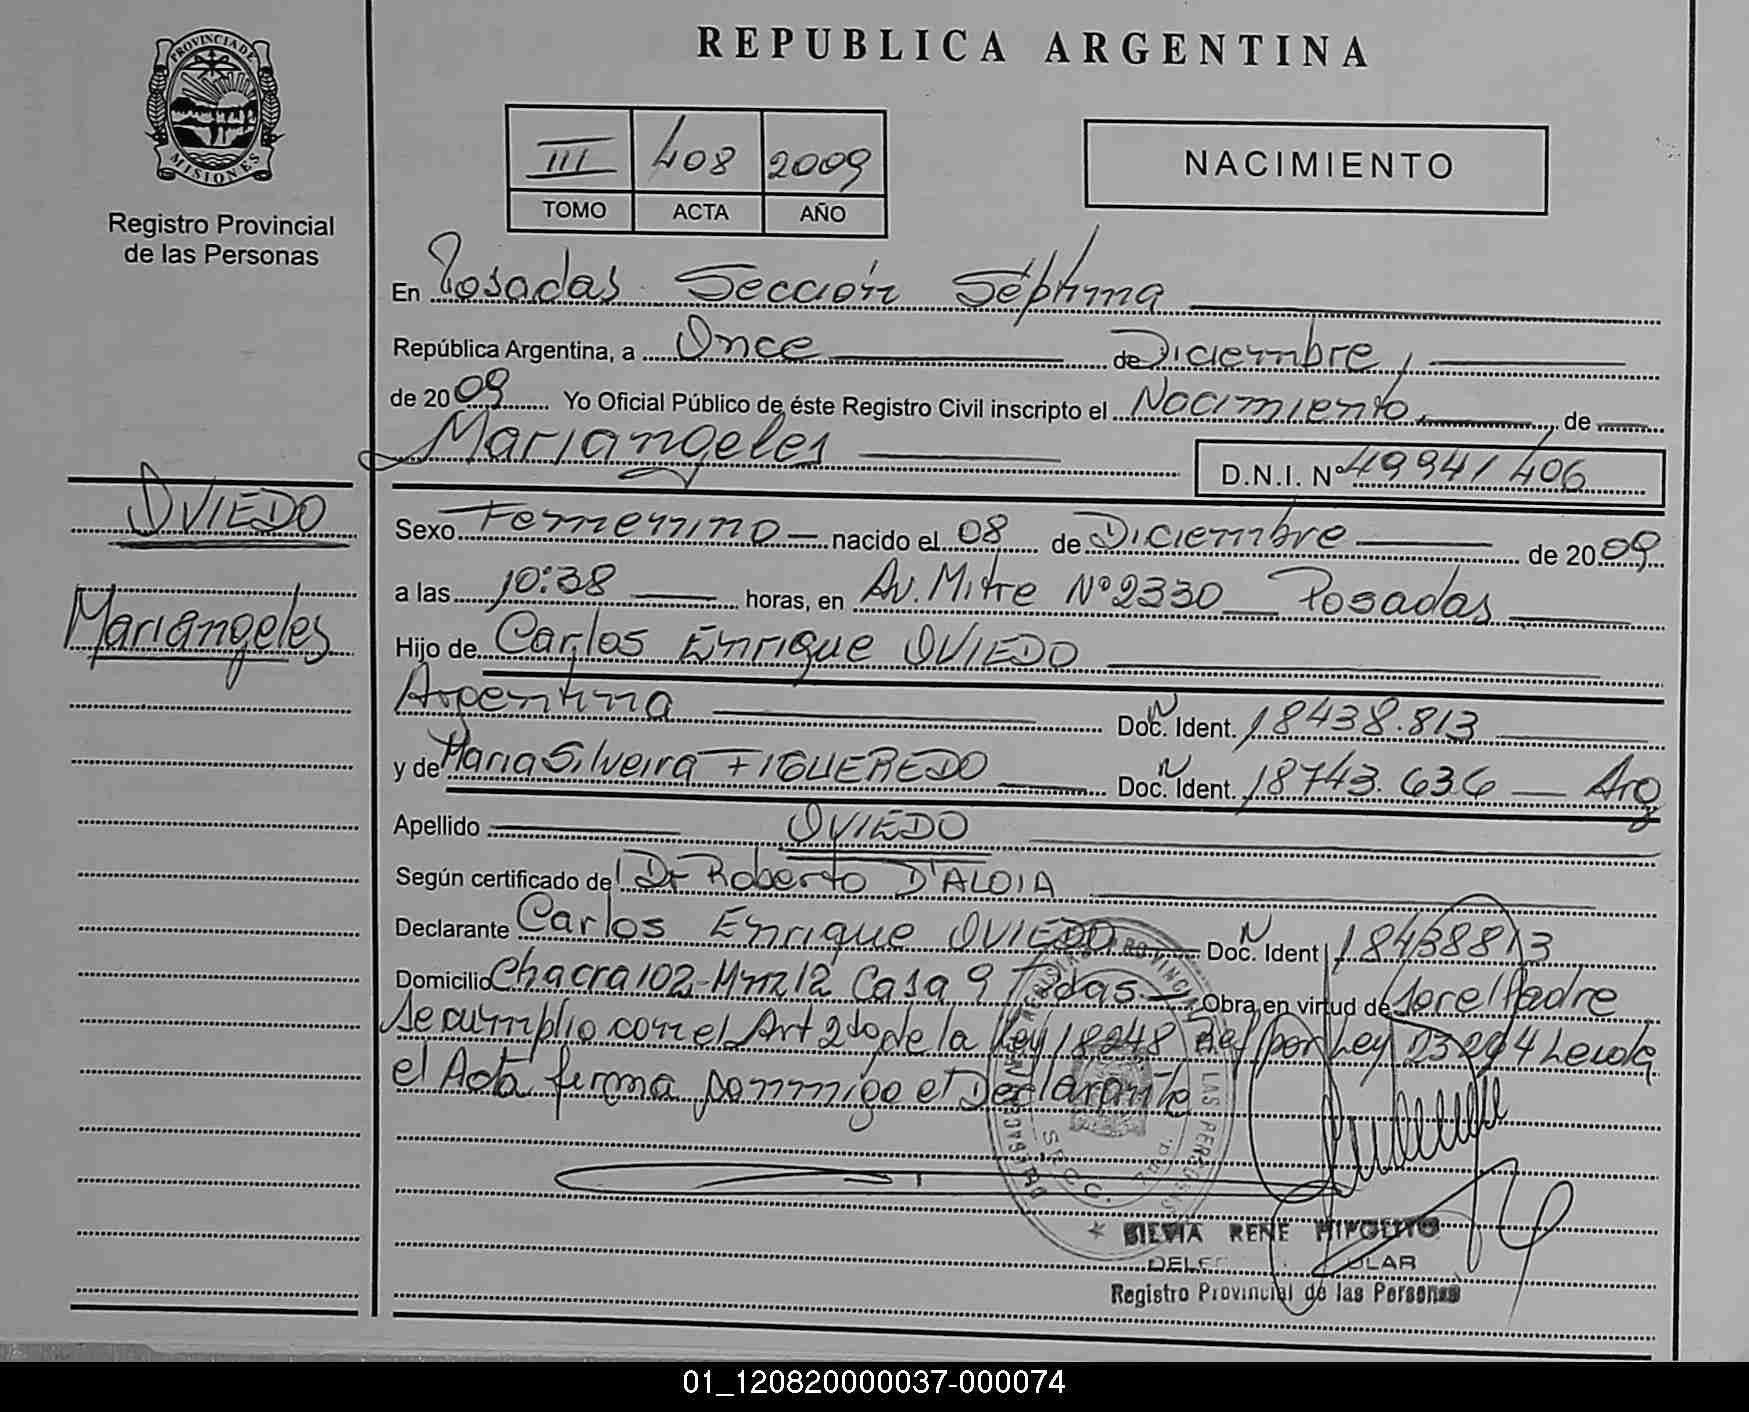 REPUBLICA ARGENTINA
PROVINCIA DE
MISIONES
Registro Provincial
de las Personas
III 408 2009
TOMO ACTA AÑO
NACIMIENTO
En Posadas Sección Séptima
República Argentina, a Once de Diciembre,
de 2009 Yo Oficial Público de éste Registro Civil inscripto el Nacimiento, de
Mariangeles
D.N.I. Nº 49941406
OVIEDO
Mariangeles
Sexo Femenino nacido el 08 de Diciembre de 2009
a las 10:38 horas, en Av. Mitre Nº 2330 Posadas
Hijo de Carlos Enrique OVIEDO
Argentina Doc. N Ident. 18438.813
y de Maria Silveira FIGUEREDO Doc. N Ident. 18743.636 Arg
Apellido OVIEDO
Según certificado de Dr Roberto D'ALOIA
Declarante Carlos Enrique OVIEDO Doc. N Ident 18438813
Domicilio Chacra 102-Mnz 12 Casa 9 Pdas Obra en virtud de ser el Padre
Se cumplio con el Art 2do de la Ley 18248 Ref por Ley Leida
el Acta firma conmigo el Declarante
LAS PERSONAS
SECC.
SILVIA RENE HIPOLITO
Registro Provincial de las Personas
01_120820000037-000074